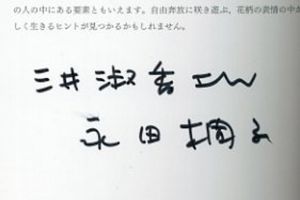 の人の中にある要素ともいえます。自由奔放に咲き遊ぶ、花柄の表情の中か
しく生きるヒントが見つかるかもしれません。
三井淑香さん
永田桐子